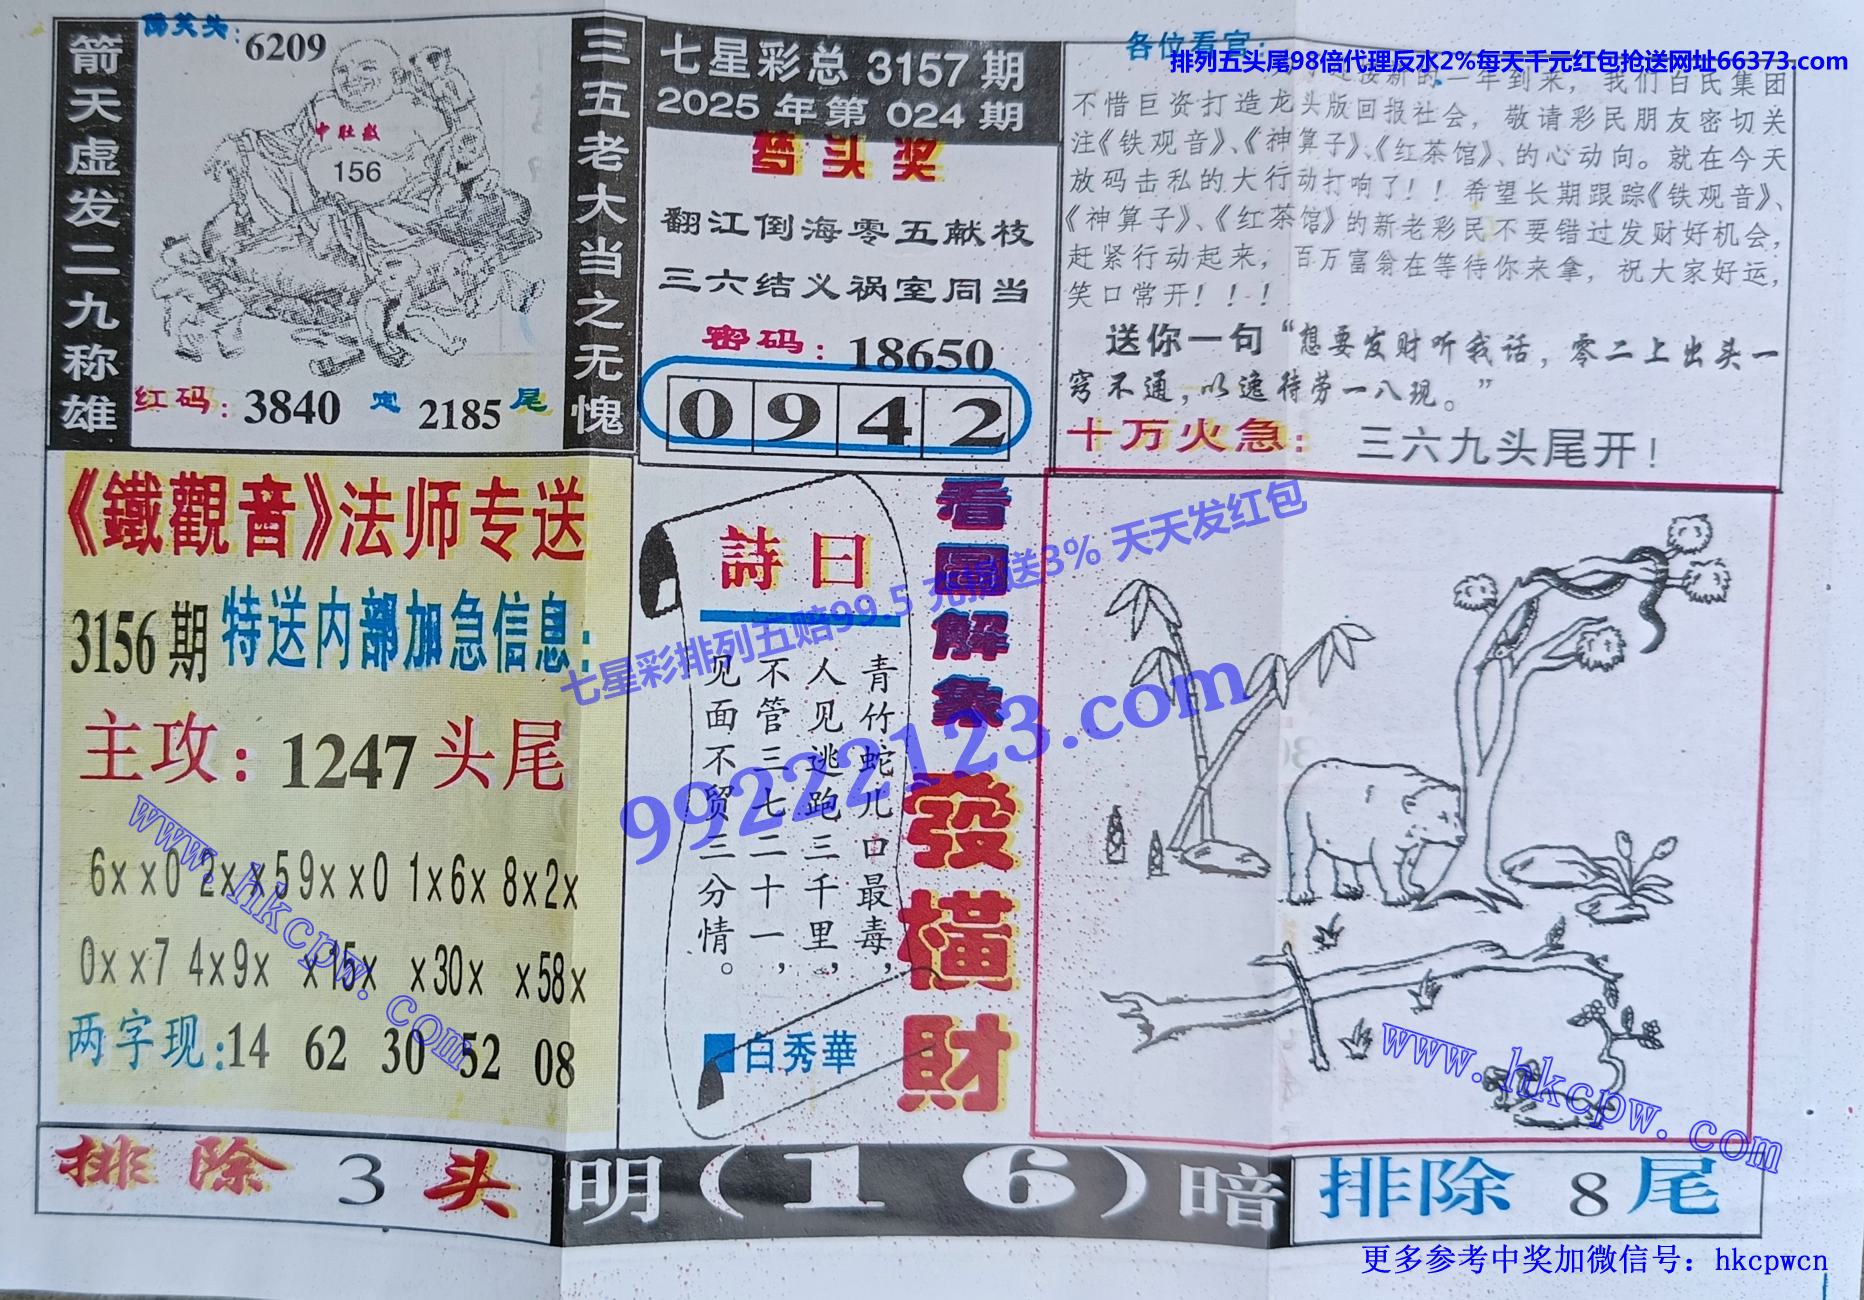 箭天虚发二九称雄
6209
中肚数
156
红码：3840 定 2185 尾
三五老大当之无愧
七星彩总 3157 期
2025 年第 024 期
梦头奖
翻江倒海零五献枝
三六结义祸室同当
密码：18650
0 9 4 2
各位看官：
排列五头尾98倍代理反水2%每天千元红包抢送网址66373.com
新的一年到来，我们百氏集团
不惜巨资打造龙头版回报社会，敬请彩民朋友密切关
注《铁观音》、《神算子》、《红茶馆》、的心动向。就在今天
放码击私的大行动打响了！！希望长期跟踪《铁观音》、
《神算子》、《红茶馆》的新老彩民不要错过发财好机会，
赶紧行动起来，百万富翁在等待你来拿，祝大家好运，
笑口常开！！！
送你一句“想要发财听我话，零二上出头一
窍不通，以逸待劳一八现。”
十万火急：三六九头尾开！
《鐵觀音》法师专送
3156期 特送内部加急信息：
主攻：1247头尾
6××0 2××5 9××0 1×6× 8×2×
0××7 4×9× ×15× ×30× ×58×
两字现：14 62 30 52 08
詩曰
青竹蛇儿口最毒，
人见逃跑三千里，
不管三七二十一，
见面不贸三分情。
白秀華
看图解象
發橫財
七星彩排列五赔99.5 充值送3% 天天发红包
99222123.com
www.hkcpw.com
www.hkcpw.com
排除 3 头
明（1 6）暗
排除 8 尾
更多参考中奖加微信号：hkcpwcn